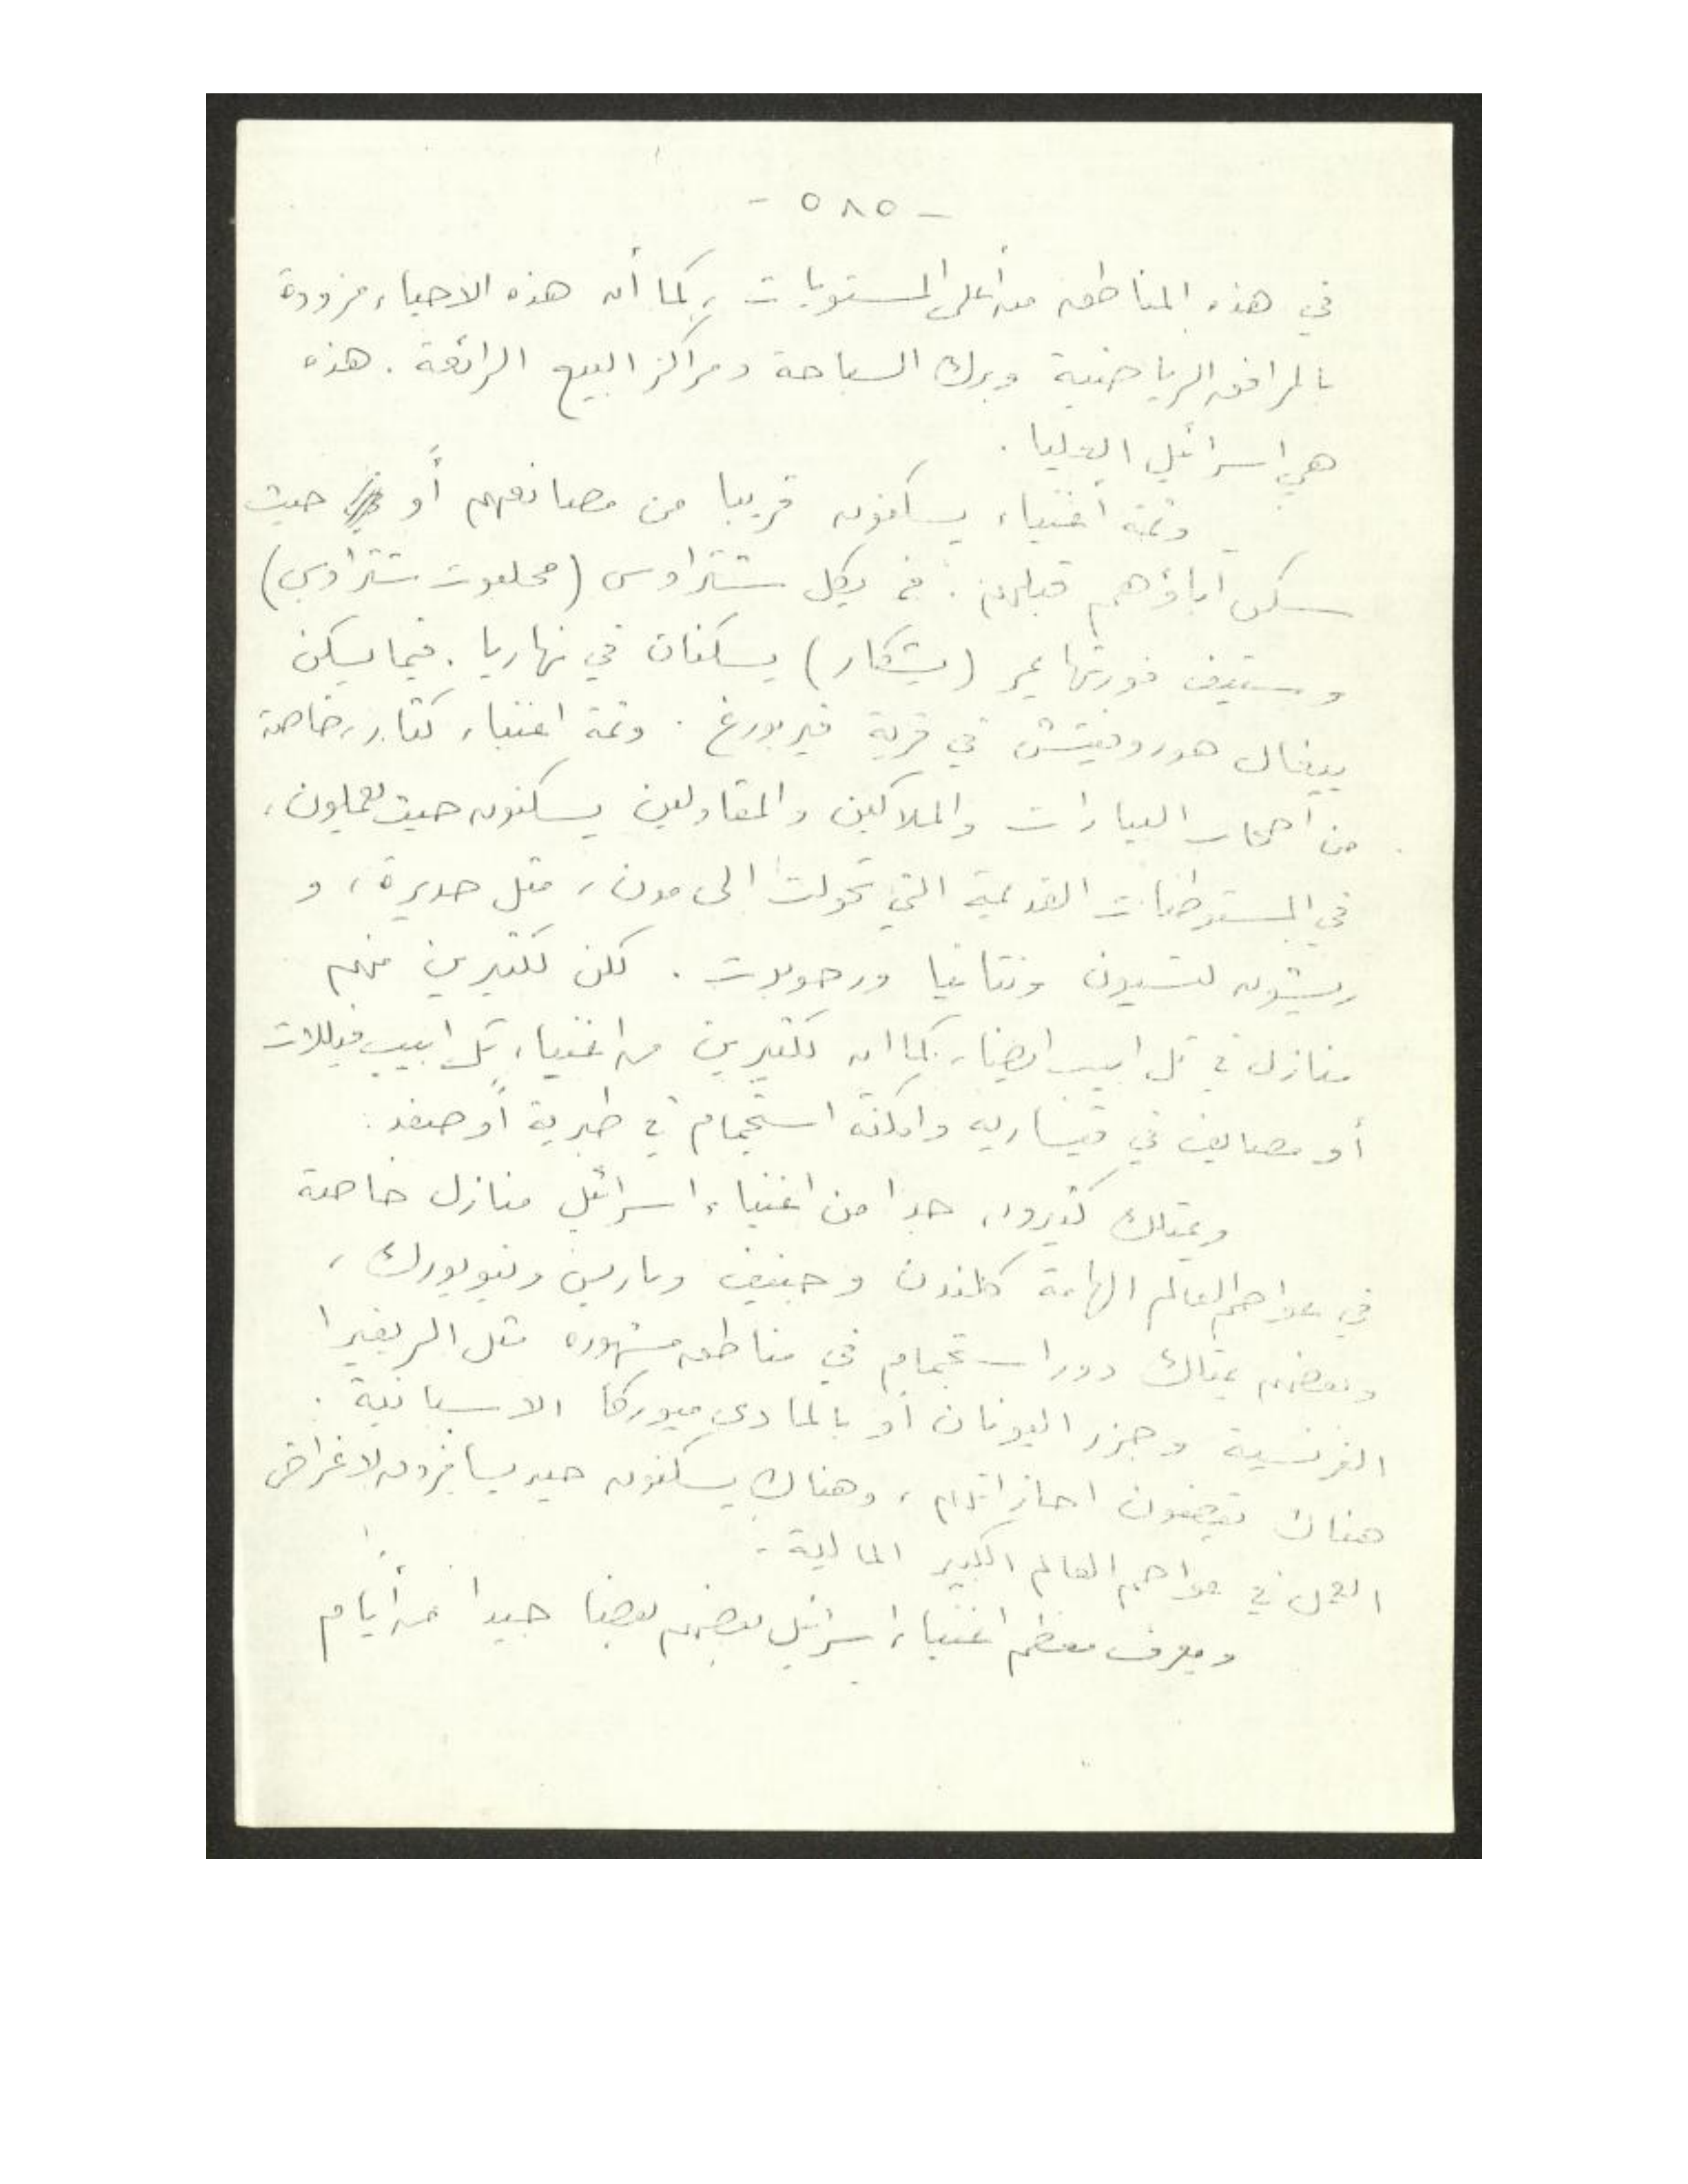 - ٥٨٥ -
في هذه المناطق من أعلى المستويات ، كما أن هذه الاحياء مزودة
بالمرافق الرياضية وبرك السباحة ومراكز البيع الرائعة . هذه
هي اسرائيل العليا .
وثمة أغنياء يسكنون قريبا من مصانعهم أو حيث
سكن آباؤهم قبلهم . شتراوس (محلبوت شتراوس)
وستيف فورتهايمر (يشكار) يسكنان في نهاريا . فيما يسكن
ييغال هوروفيتش في قرية فيربورغ . وثمة اغنياء كثار ، خاصة
من اصحاب البيارات والملاكين والمقاولين يسكنون حيث يعملون ،
في المستوطنات القديمة التي تحولت الى مدن ، مثل حديرة ، و
ريشون لتسيون ونتانيا ورحوبوت . لكن لكثيرين منهم
منازل في تل ابيب ايضا ، كما ان لكثيرين من اغنياء تل ابيب فيللات
أو مصايف في قيساريه وامكنة استجمام في طبرية أو صفد .
ويمتلك كثيرون جدا من اغنياء اسرائيل منازل خاصة
في عواصم العالم الهامة كلندن وجنيف وباريس ونيويورك ،
وبعضهم يمتلك دور استجمام في مناطق مشهوره مثل الريفيرا
الفرنسية وجزر اليونان أو بالما دي ميوركا الاسبانية .
هناك يقضون اجازاتهم ، وهناك يسكنون حين يسافرون لاغراض
العمل في عواصم العالم الكبير المالية .
ويعرف معظم اغنياء اسرائيل بعضهم بعضا جيدا من أيام